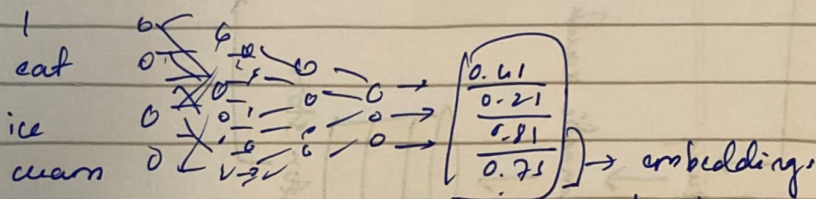 I
eat
ice
cream
0.41
0.21
0.81
0.75
→ embeddings